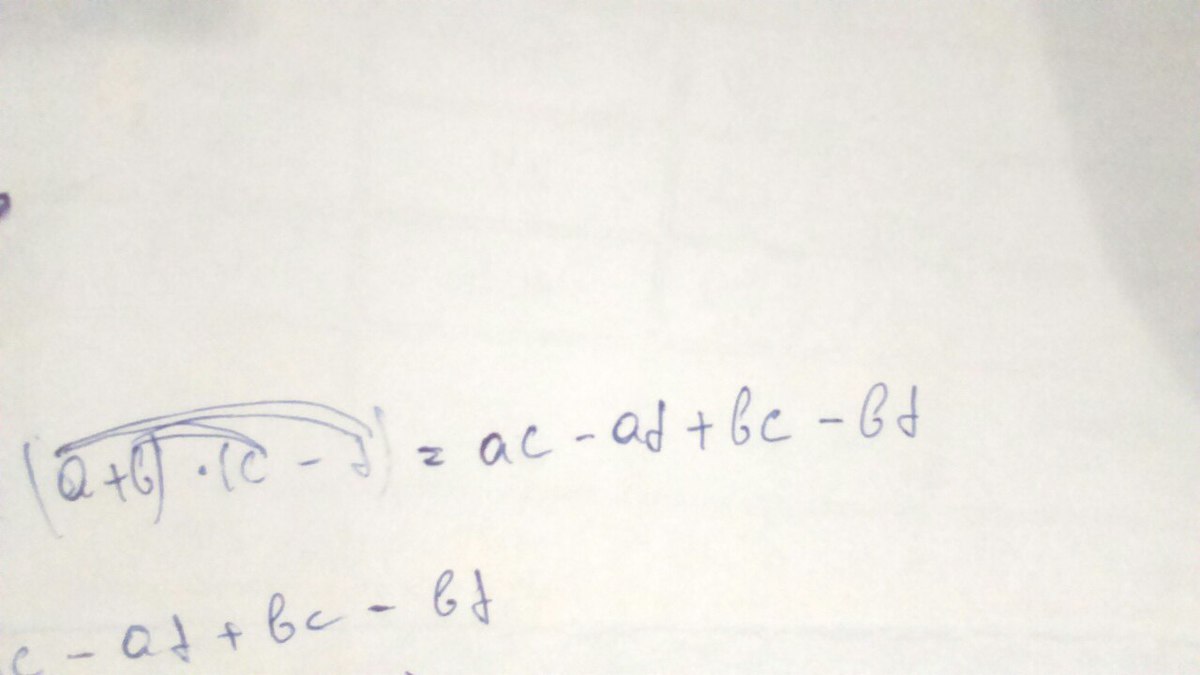 (a+b)·(c-d) = ac-ad+bc-bd
c-ad+bc-bd